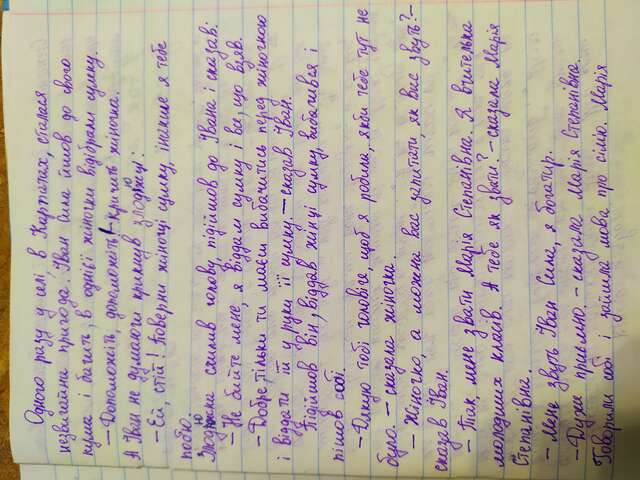 Одного разу у селі в Карпатах, сталася
незвичайна пригода. Іван Сила йшов до свого
кума і бачить, в однієї жіночки відібрали сумку.
– Допоможіть, допоможіть! – кричить жіночка.
А Іван не думаючи крикнув злодюжці:
– Ей, стій! Поверни жіночці сумку, інакше я тебе
поб'ю.
Злодюжка схилив голову, підійшов до Івана і сказав:
– Не бийте мене, я віддам сумку і все, що взяв.
– Добре, тільки ти маєш вибачитись перед жіночкою
і віддати їй у руки її сумку – сказав Іван.
Підійшов він, віддав жінці сумку, вибачився і
пішов собі.
– Дякую тобі чоловіче, щоб я робила, якби тебе тут не
було. – сказала жіночка.
– Жіночко, а можна вас запитати, як вас звуть? –
сказав Іван.
– Так, мене звати Марія Степанівна. Я вчителька
молодших класів. А тебе як звати? – сказала Марія
Степанівна.
– Мене звуть Іван Сила, я богатир.
– Дуже приємно. – сказала Марія Степанівна.
Говорили собі і зайшла мова про сім'ю Марія